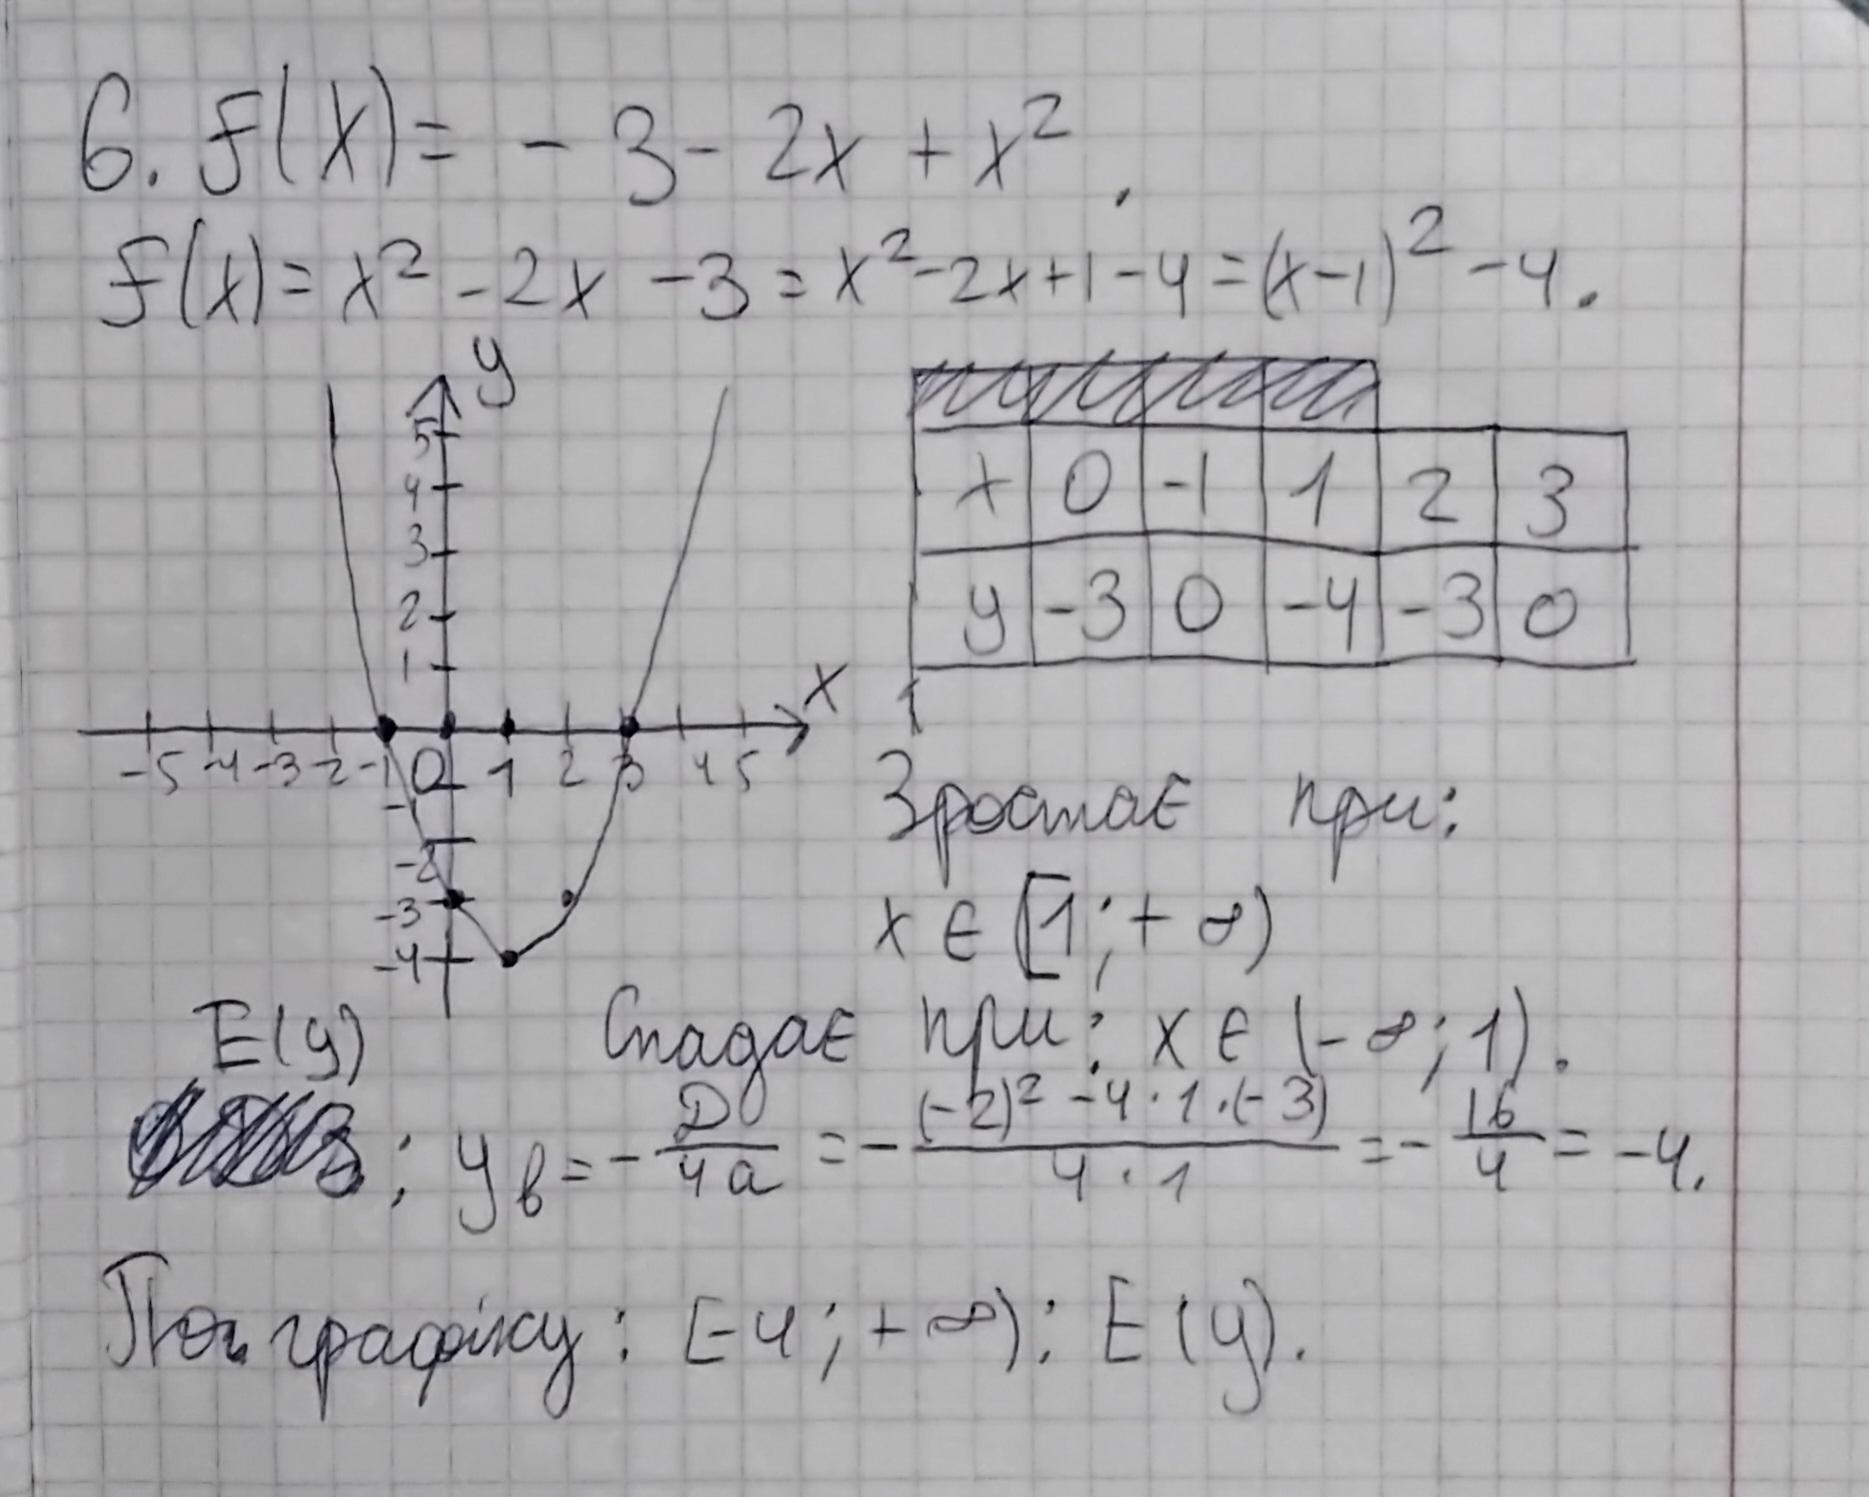 6. f(x) = - 3 - 2x + x².
f(x) = x² - 2x - 3 = x² - 2x + 1 - 4 = (x-1)² - 4.
y
5
4
3
2
1
x
-5 -4 -3 -2 -1 0 1 2 3 4 5
-1
-2
-3
-4
x 0 -1 1 2 3
y -3 0 -4 -3 0
Зростає при:
x ∈ [1; + ∞)
Спадає при: x ∈ (- ∞; 1).
E(y)
; yв = - D/4a = - (-2)² - 4 · 1 · (-3)/4 · 1 = - 16/4 = -4.
По графіку: [-4; + ∞): E(y).